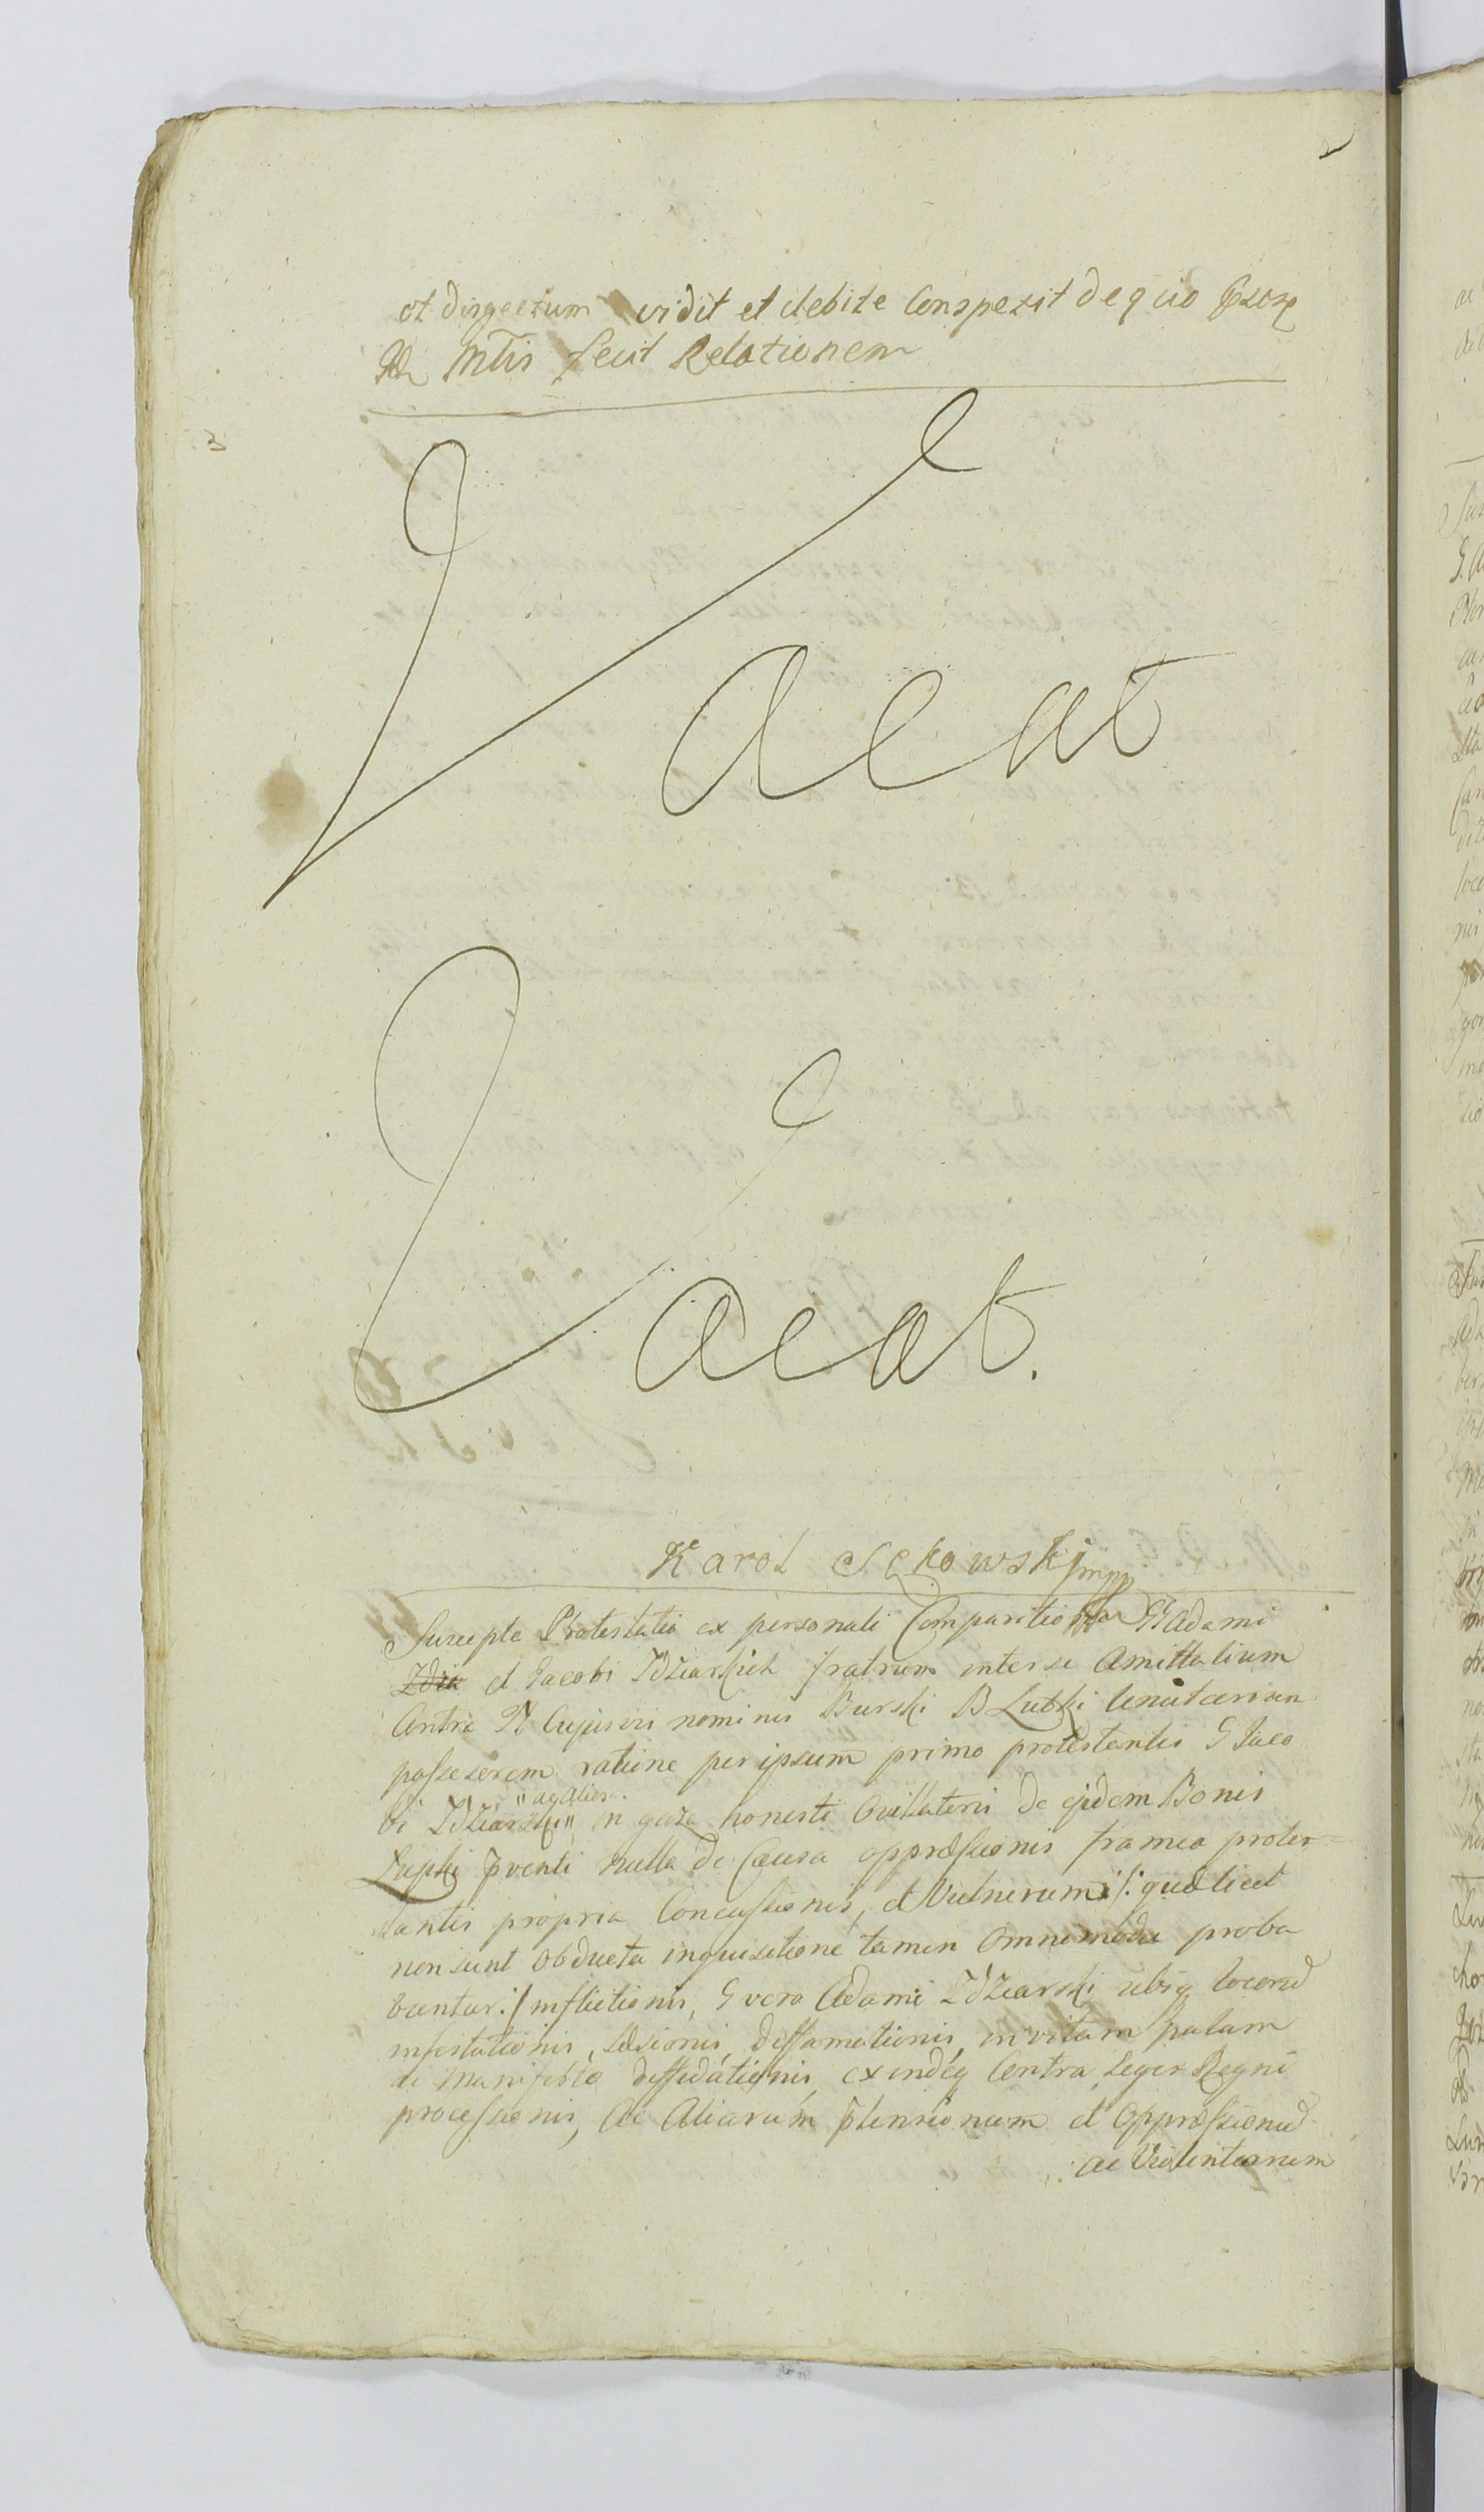 et disgectum vidit et debite Conspexit de quo
Mtis fecit Relationem
3
Vacat
Vacat.
Karol Sękowski mpp
Suscepta Protestatio ex personali Comparitio GG Adami
Zdzia et Jacobi Jdziarskich fratrum inter se Amittalium
Contra N Cujusvis nominis Burski B Lutki tenutarium
possesorem ratione per ipsum primo protestantis G Jaco
bi Jdziarski "ag alies" in gaza honesti Ovillatoris de ejdem Bonis
Lupki pventi nulla de Causa oppressionis framea protes=
tantis propria Concussionis, et Vulnerum /: quæ licet
non sunt obducta inquisitione tamen omnimoda proba
buntur :/ inflictionis, G vero Adami Jdziarski ubiq locorum
infestationis, læsionis, diffamationis, in vitam palam
de Manifesto diffidationis, exindeq Contra Leges Regni
processionis, ac Aliarum ptensionum et oppressionum
ac Violentiarum